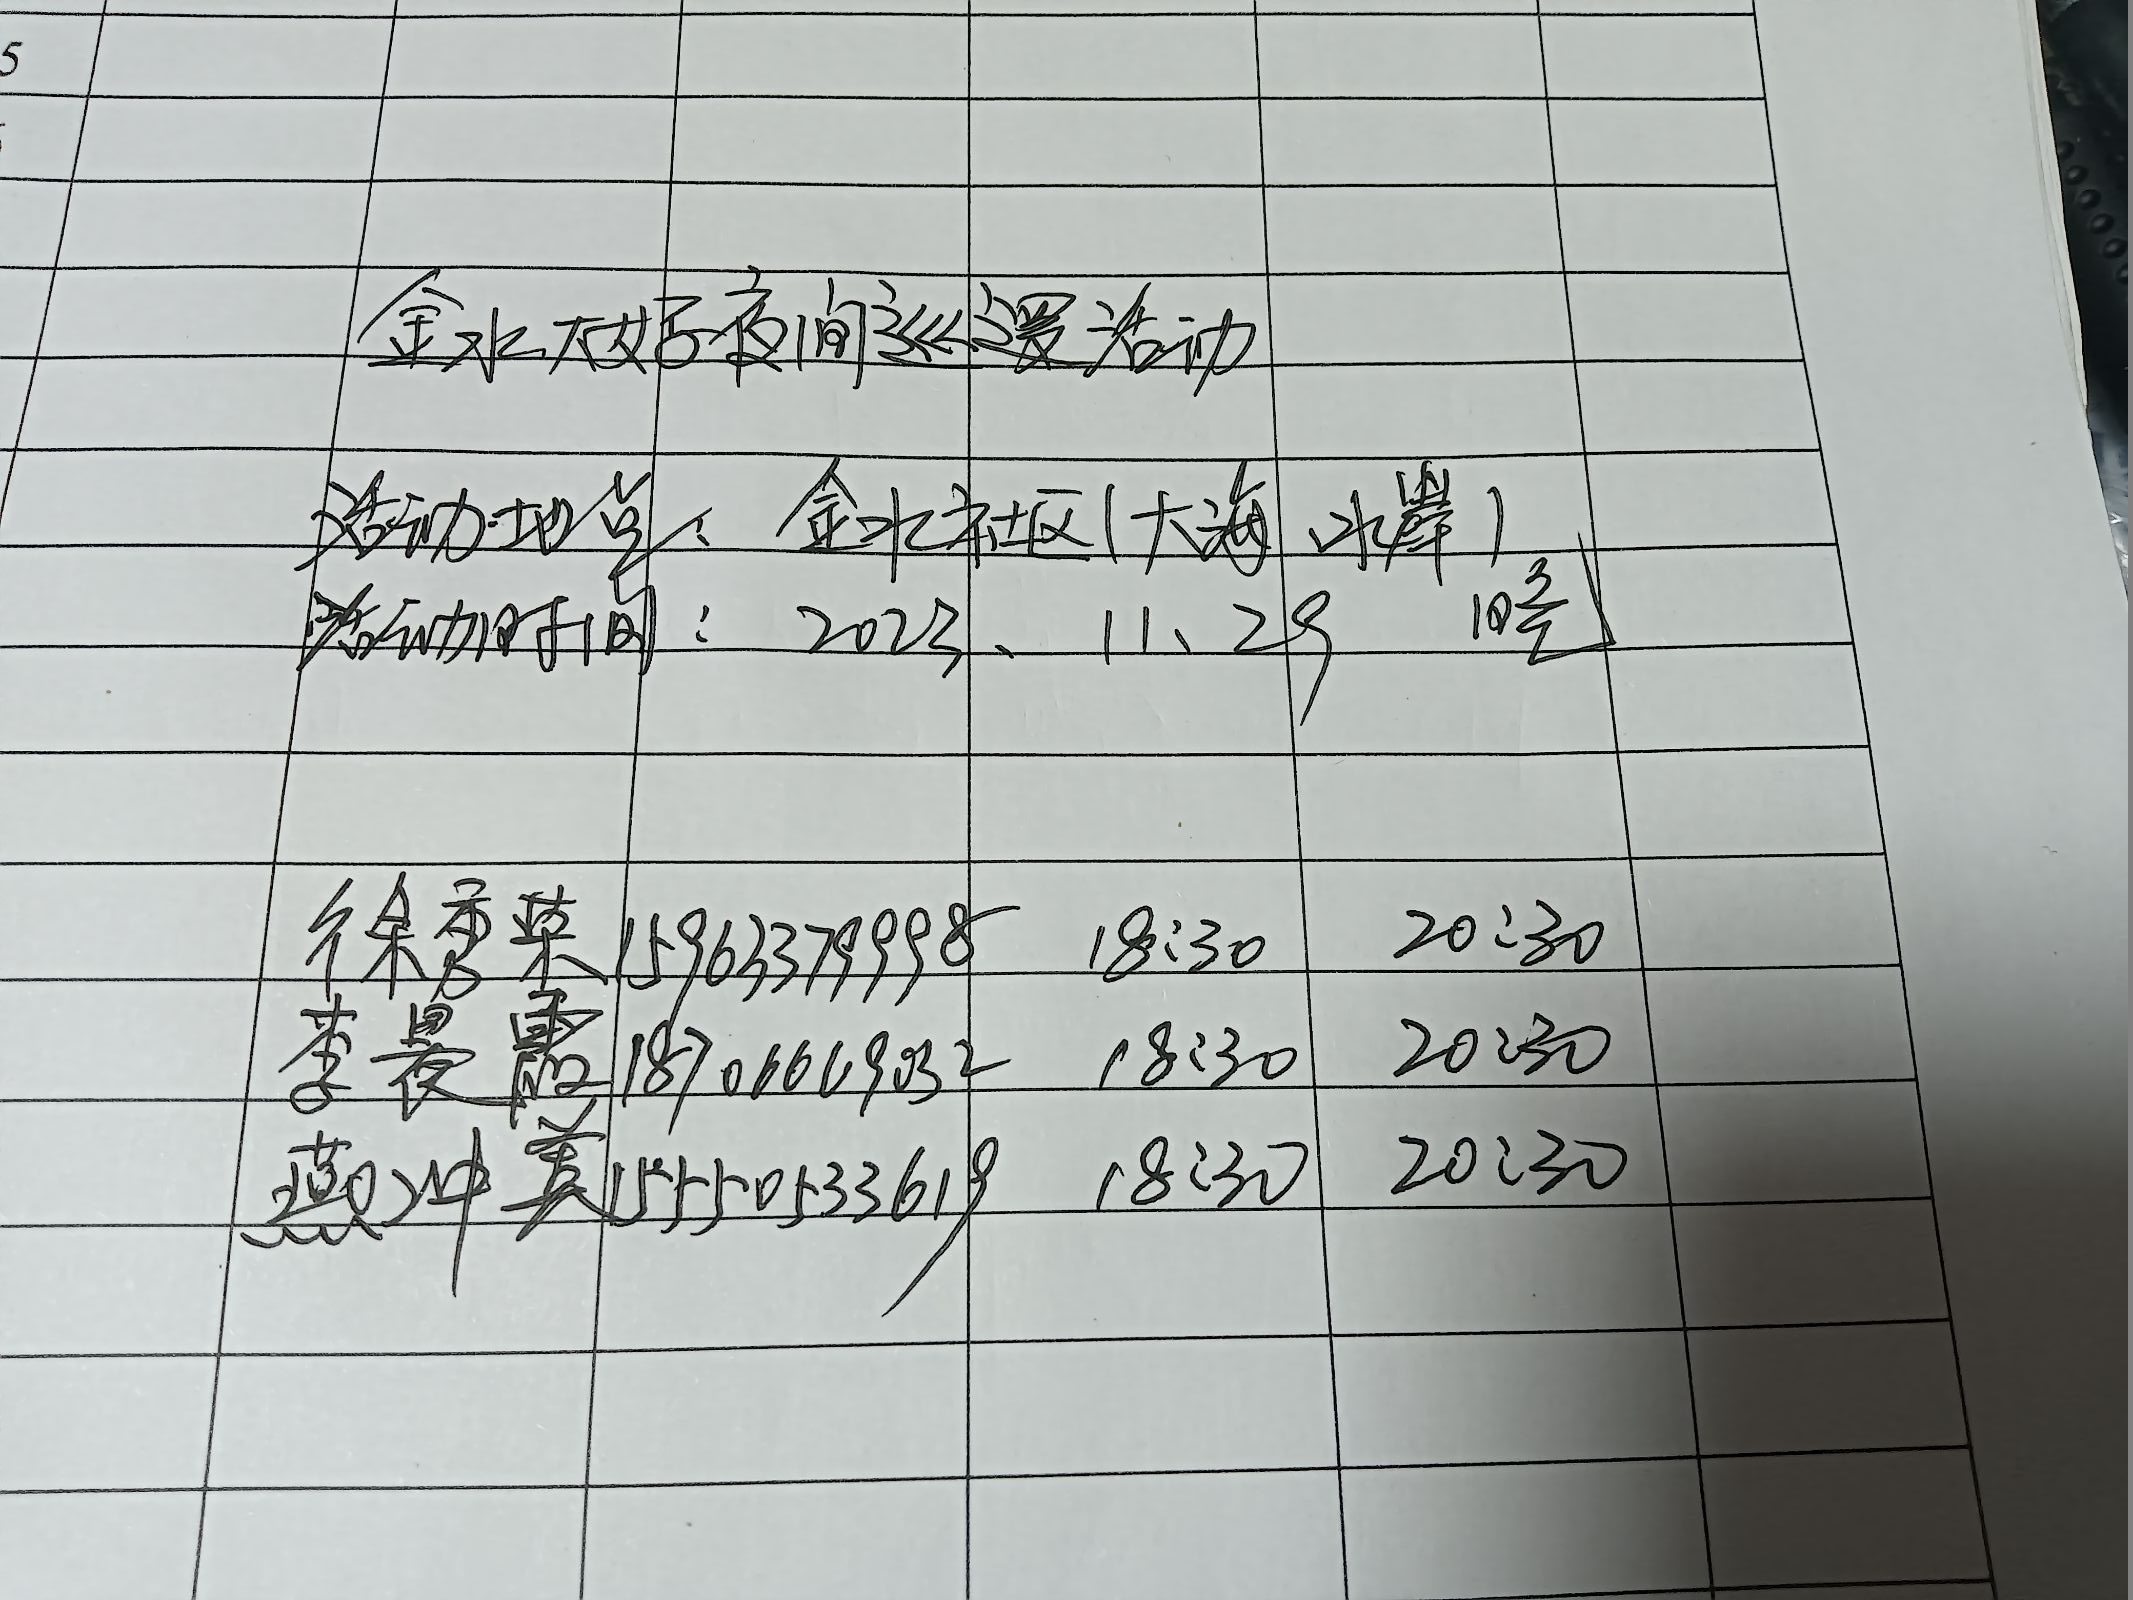 5
金水大姑子夜间巡逻活动
活动地点: 金水社区(大海水岸)
活动时间: 2023、11、29 晚
徐秀荣 15963379998 18:30 20:30
李晏霞 18706669032 18:30 20:30
燕冲美 15550533619 18:30 20:30